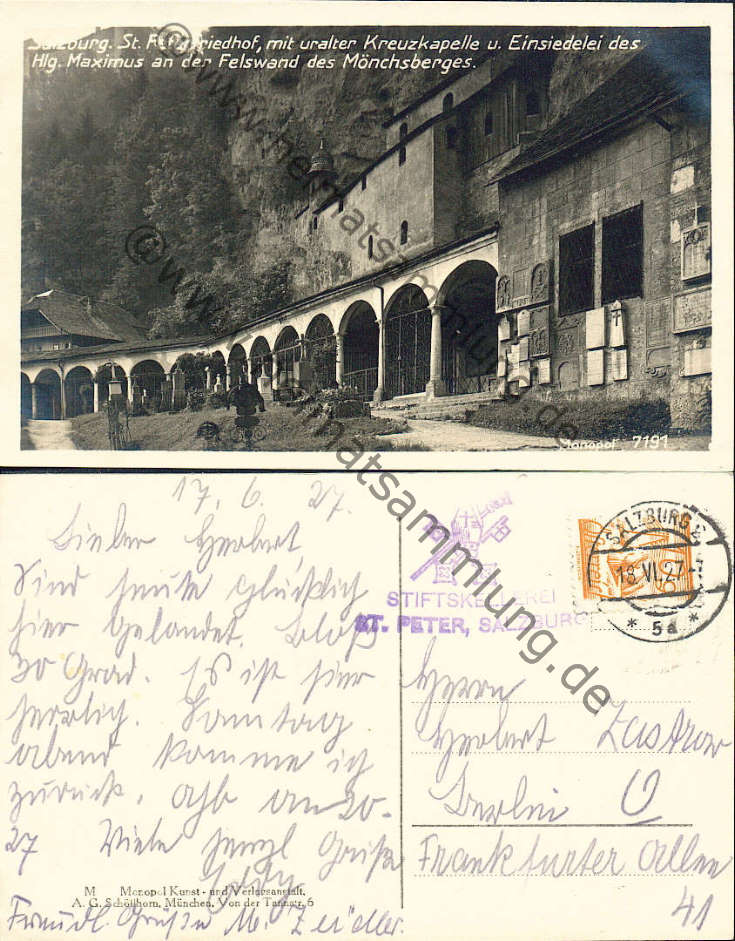 Salzburg. St. Petersfriedhof, mit uralter Kreuzkapelle u. Einsiedelei des
Hlg. Maximus an der Felswand des Mönchsberges.
7191
www.heimatsammlung.de
17. 6. 27.
Lieber Herbert,
Sind heute Glücklich
hier Gelandet. Bloß
30 Grad. Es ist hier
herrlig. Samtag
abend komme ich
zurück. Ahb an 20-
27 Viele herzl Grüße
M Monopol Kunst- und Verlagsanstalt,
A. G. Schöllhorn, München, Von der Tannstr. 6
Freudl. Grüße M. Zeidler.
STIFTSKELLEREI
ST. PETER, SALZBURG
SALZBURG 2
18.VI.27
* 5a *
Herrn
Herbert Zastrow
Berlin O
Frankfurter Allee
41